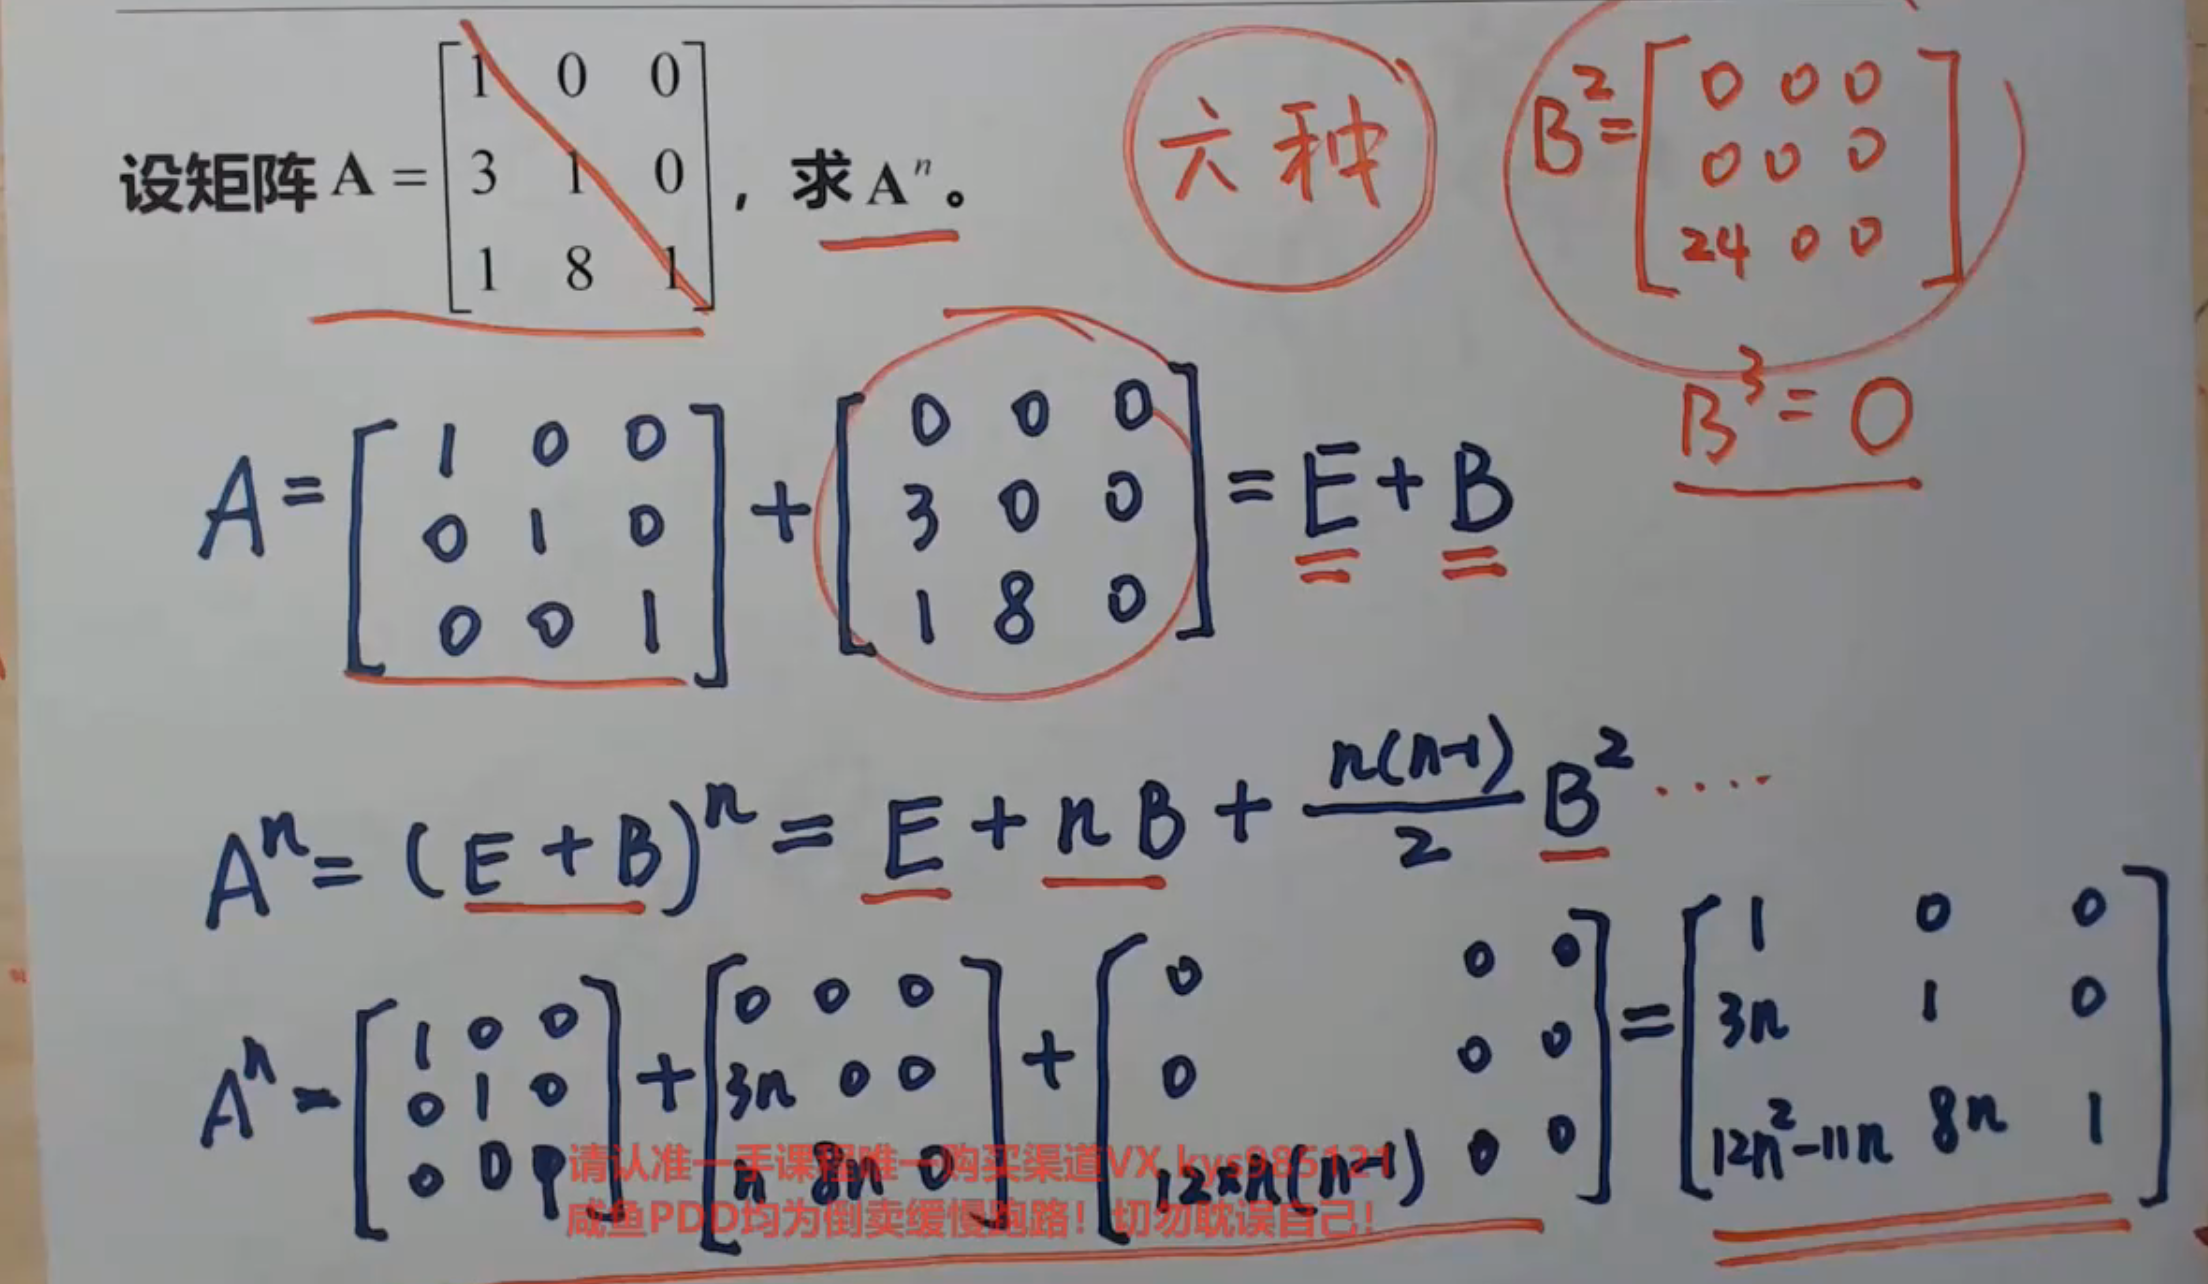 设矩阵 A = [1 0 0; 3 1 0; 1 8 1]，求 Aⁿ。
六种
B² = [0 0 0; 0 0 0; 24 0 0]
B³ = 0
A = [1 0 0; 0 1 0; 0 0 1] + [0 0 0; 3 0 0; 1 8 0] = E + B
Aⁿ = (E + B)ⁿ = E + nB + n(n-1)/2 B² ....
Aⁿ = [1 0 0; 0 1 0; 0 0 1] + [0 0 0; 3n 0 0; n 8n 0] + [0 0 0; 0 0 0; 12×n(n-1) 0 0] = [1 0 0; 3n 1 0; 12n²-11n 8n 1]
请认准一手课程唯一购买渠道VX kys985121
咸鱼PDD均为倒卖缓慢跑路！切勿耽误自己！